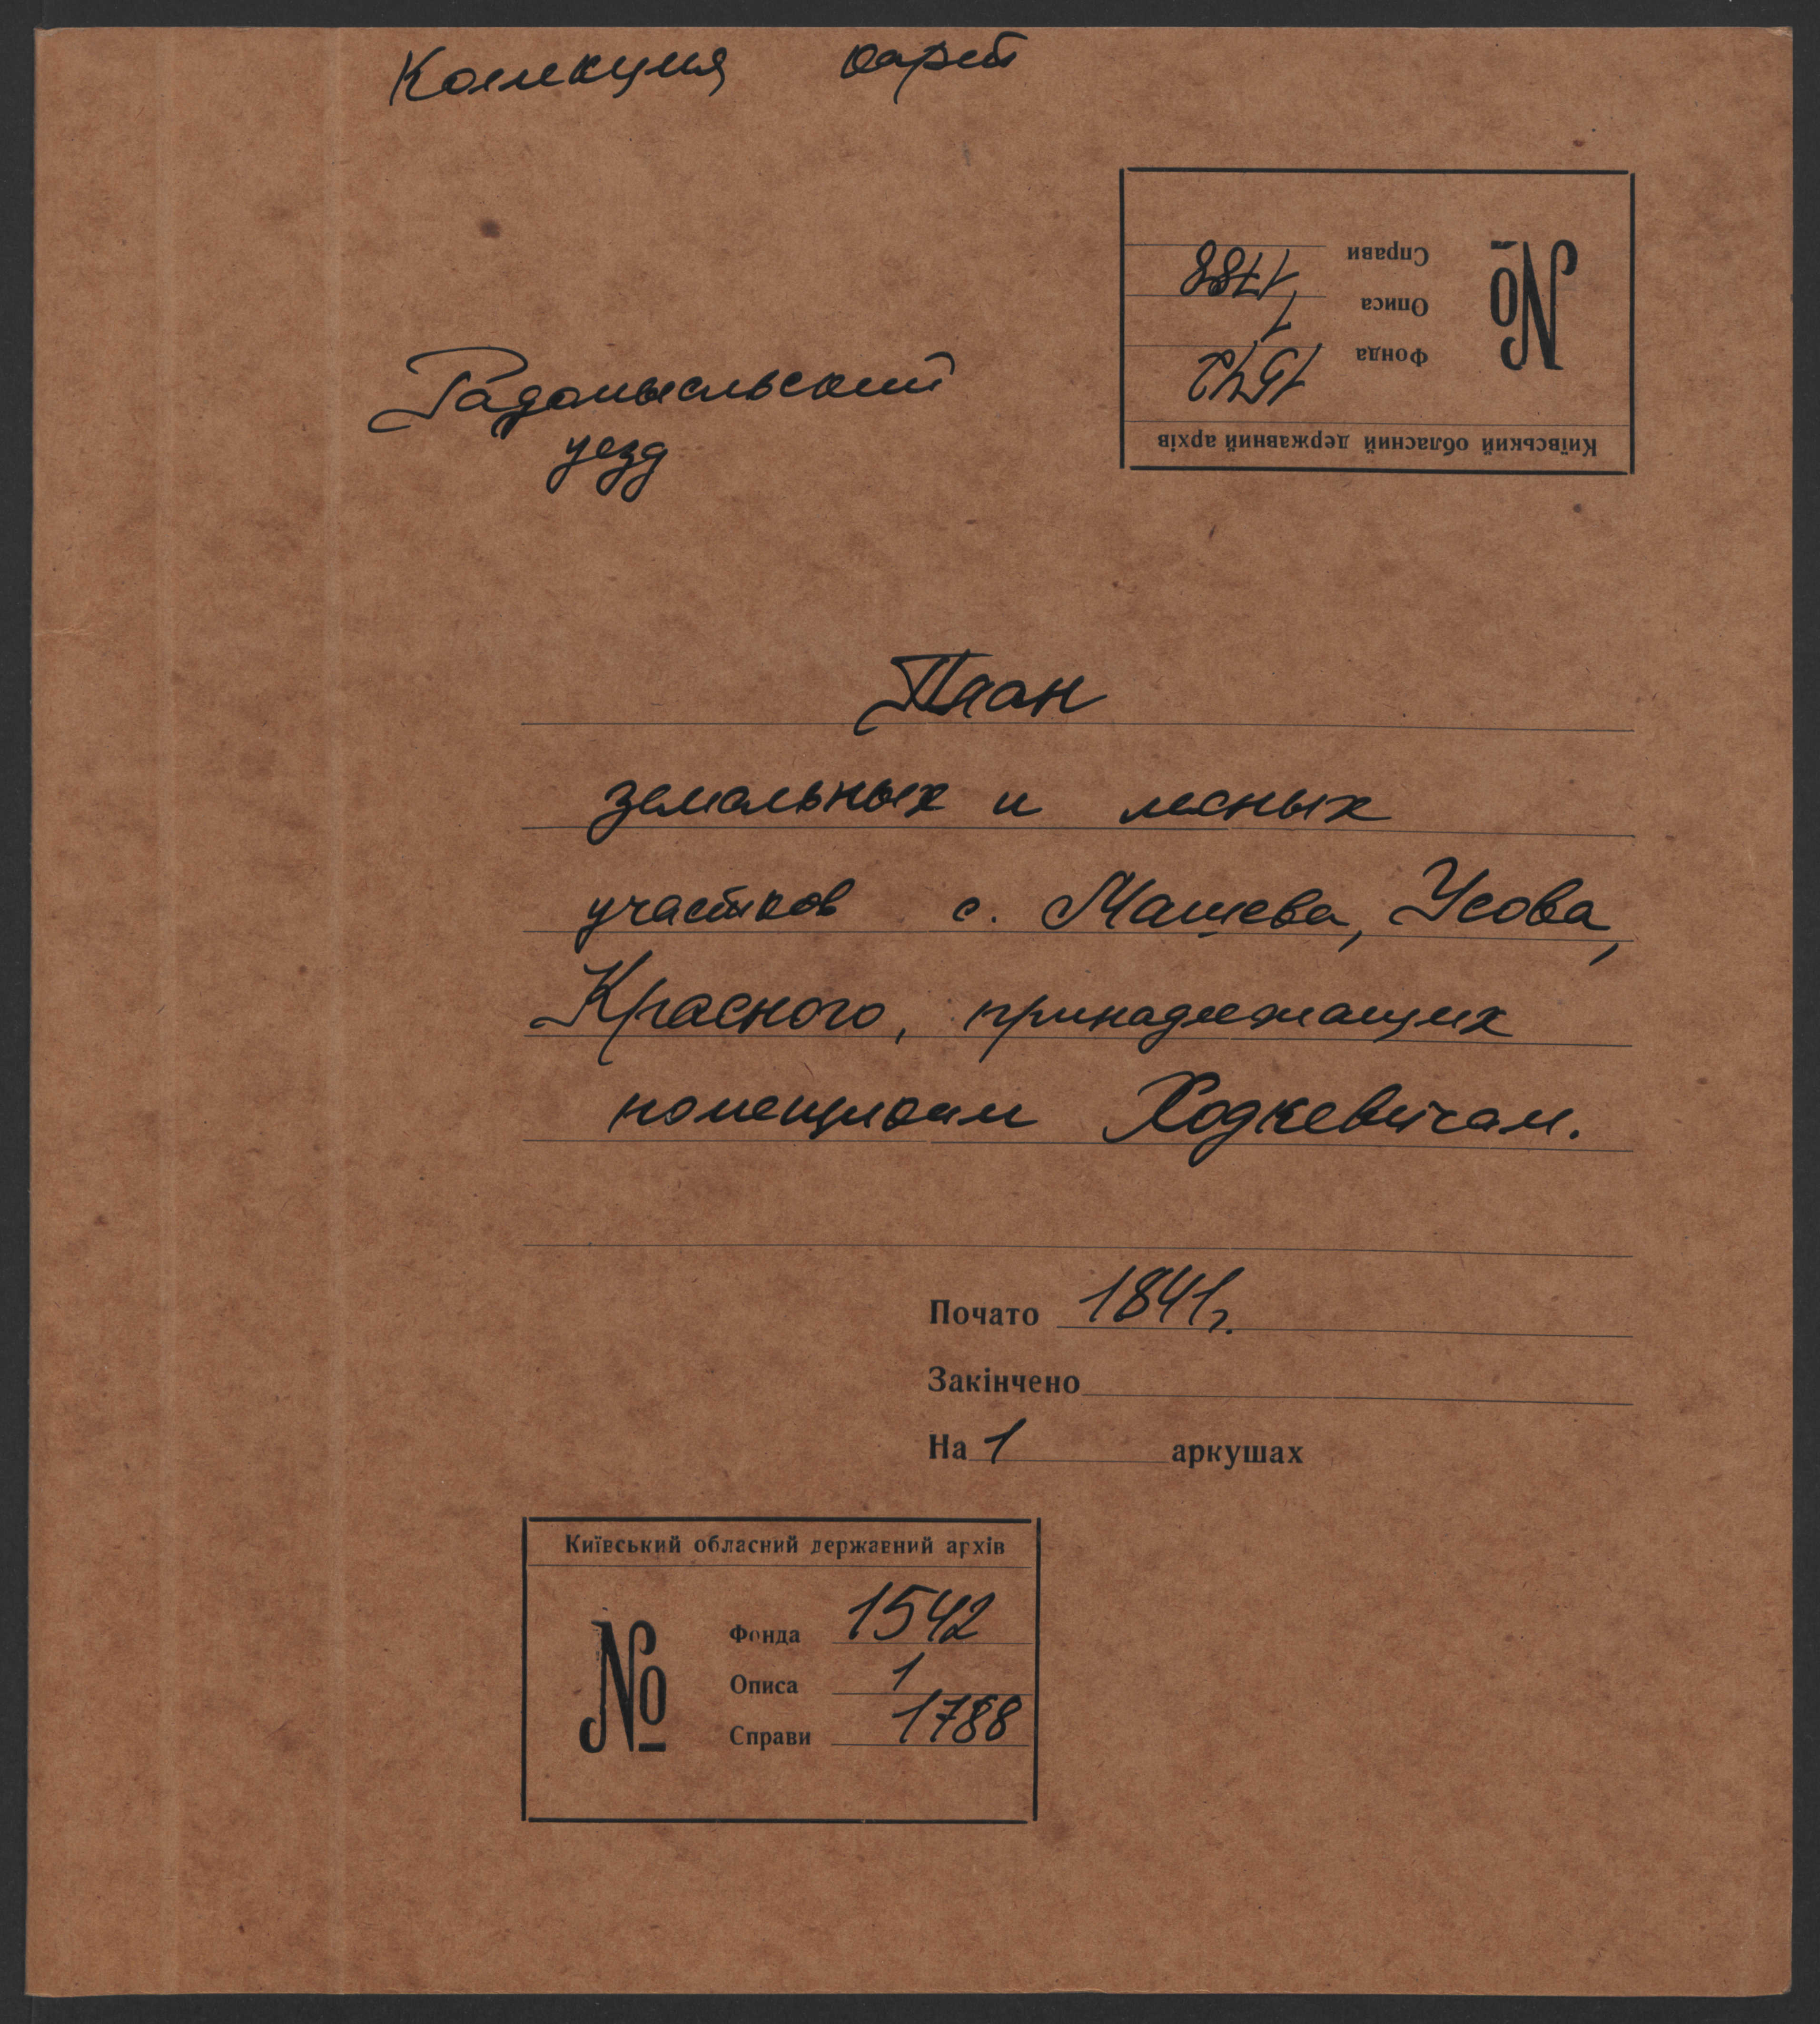 Коллекция карт
Справи 1788
Описа 1
Фонда 1542
№
Київський обласний державний архів
Радомысльский
уезд
План
земельных и лесных
участков с. Машева, Усова,
Красного, принадлежащих
помещикам Ходкевичам.
Почато 1841г.
Закінчено
На 1 аркушах
Київський обласний державний архів
№
Фонда 1542
Описа 1
Справи 1788